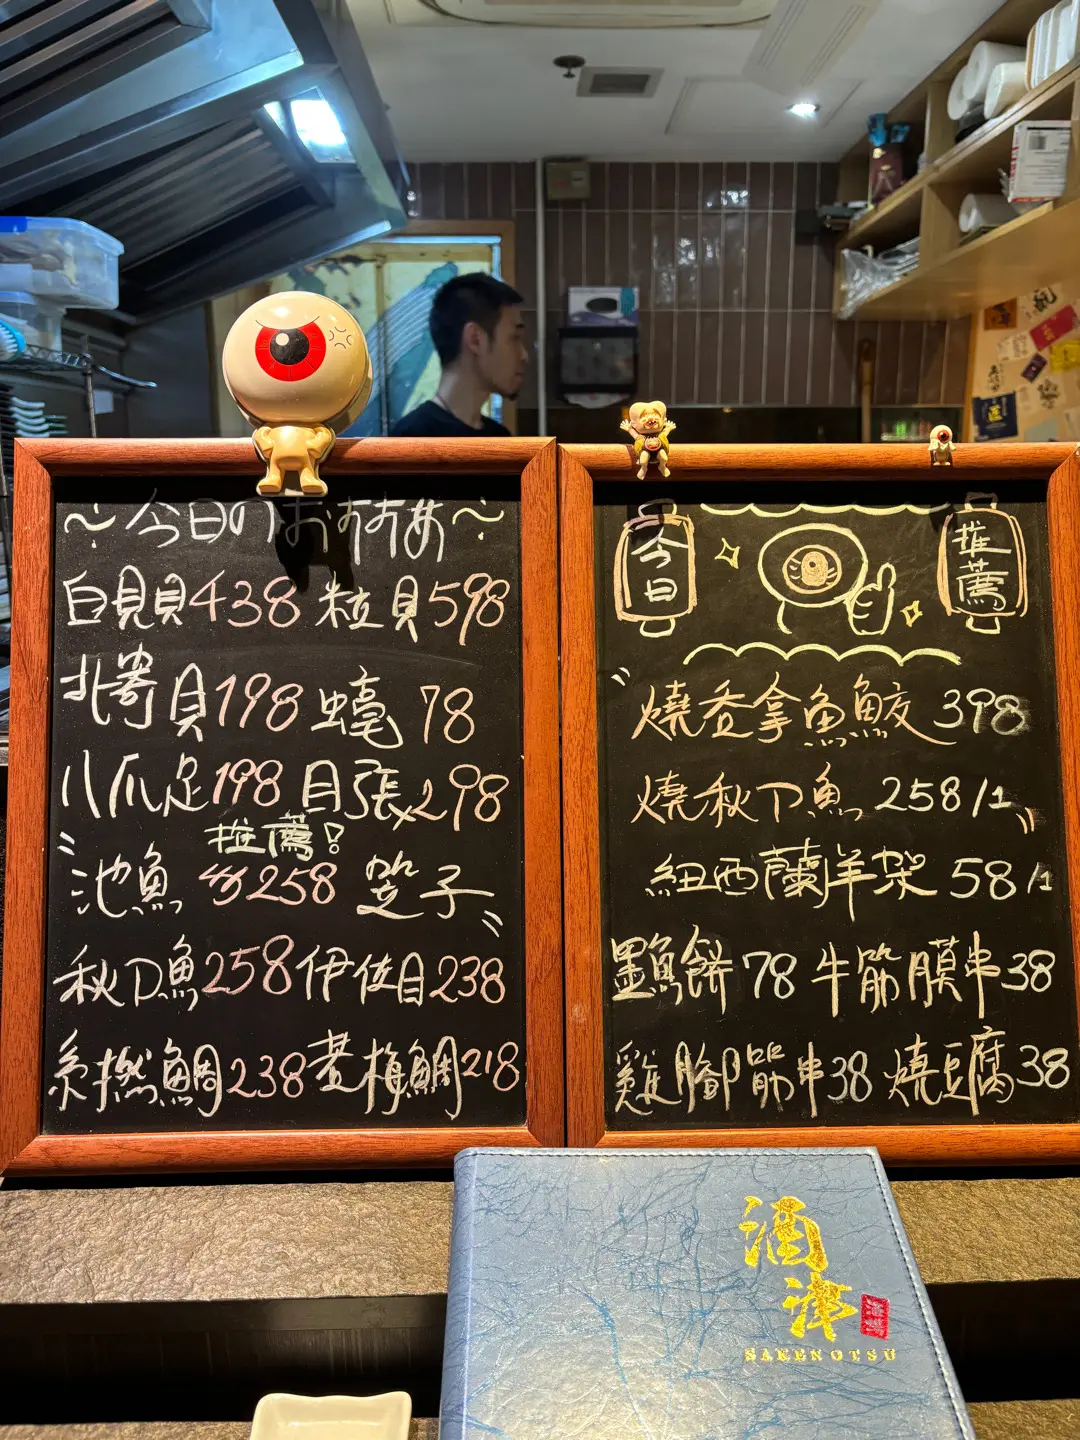 ～今日のおすすめ～
白貝438 粒貝598
北寄貝198 蠔78
八爪足198 目張298
推薦!
池魚 258 笠子
秋刀魚258 伊佐目238
糸撚鯛238 黄梅鯛218
今日 推薦
燒香拿魚鮫398
燒秋刀魚258/1
紐西蘭羊架58/1
墨魚餅78 牛筋膜串38
雞腳筋串38 燒豆腐38
酒津
SAKENOTSU